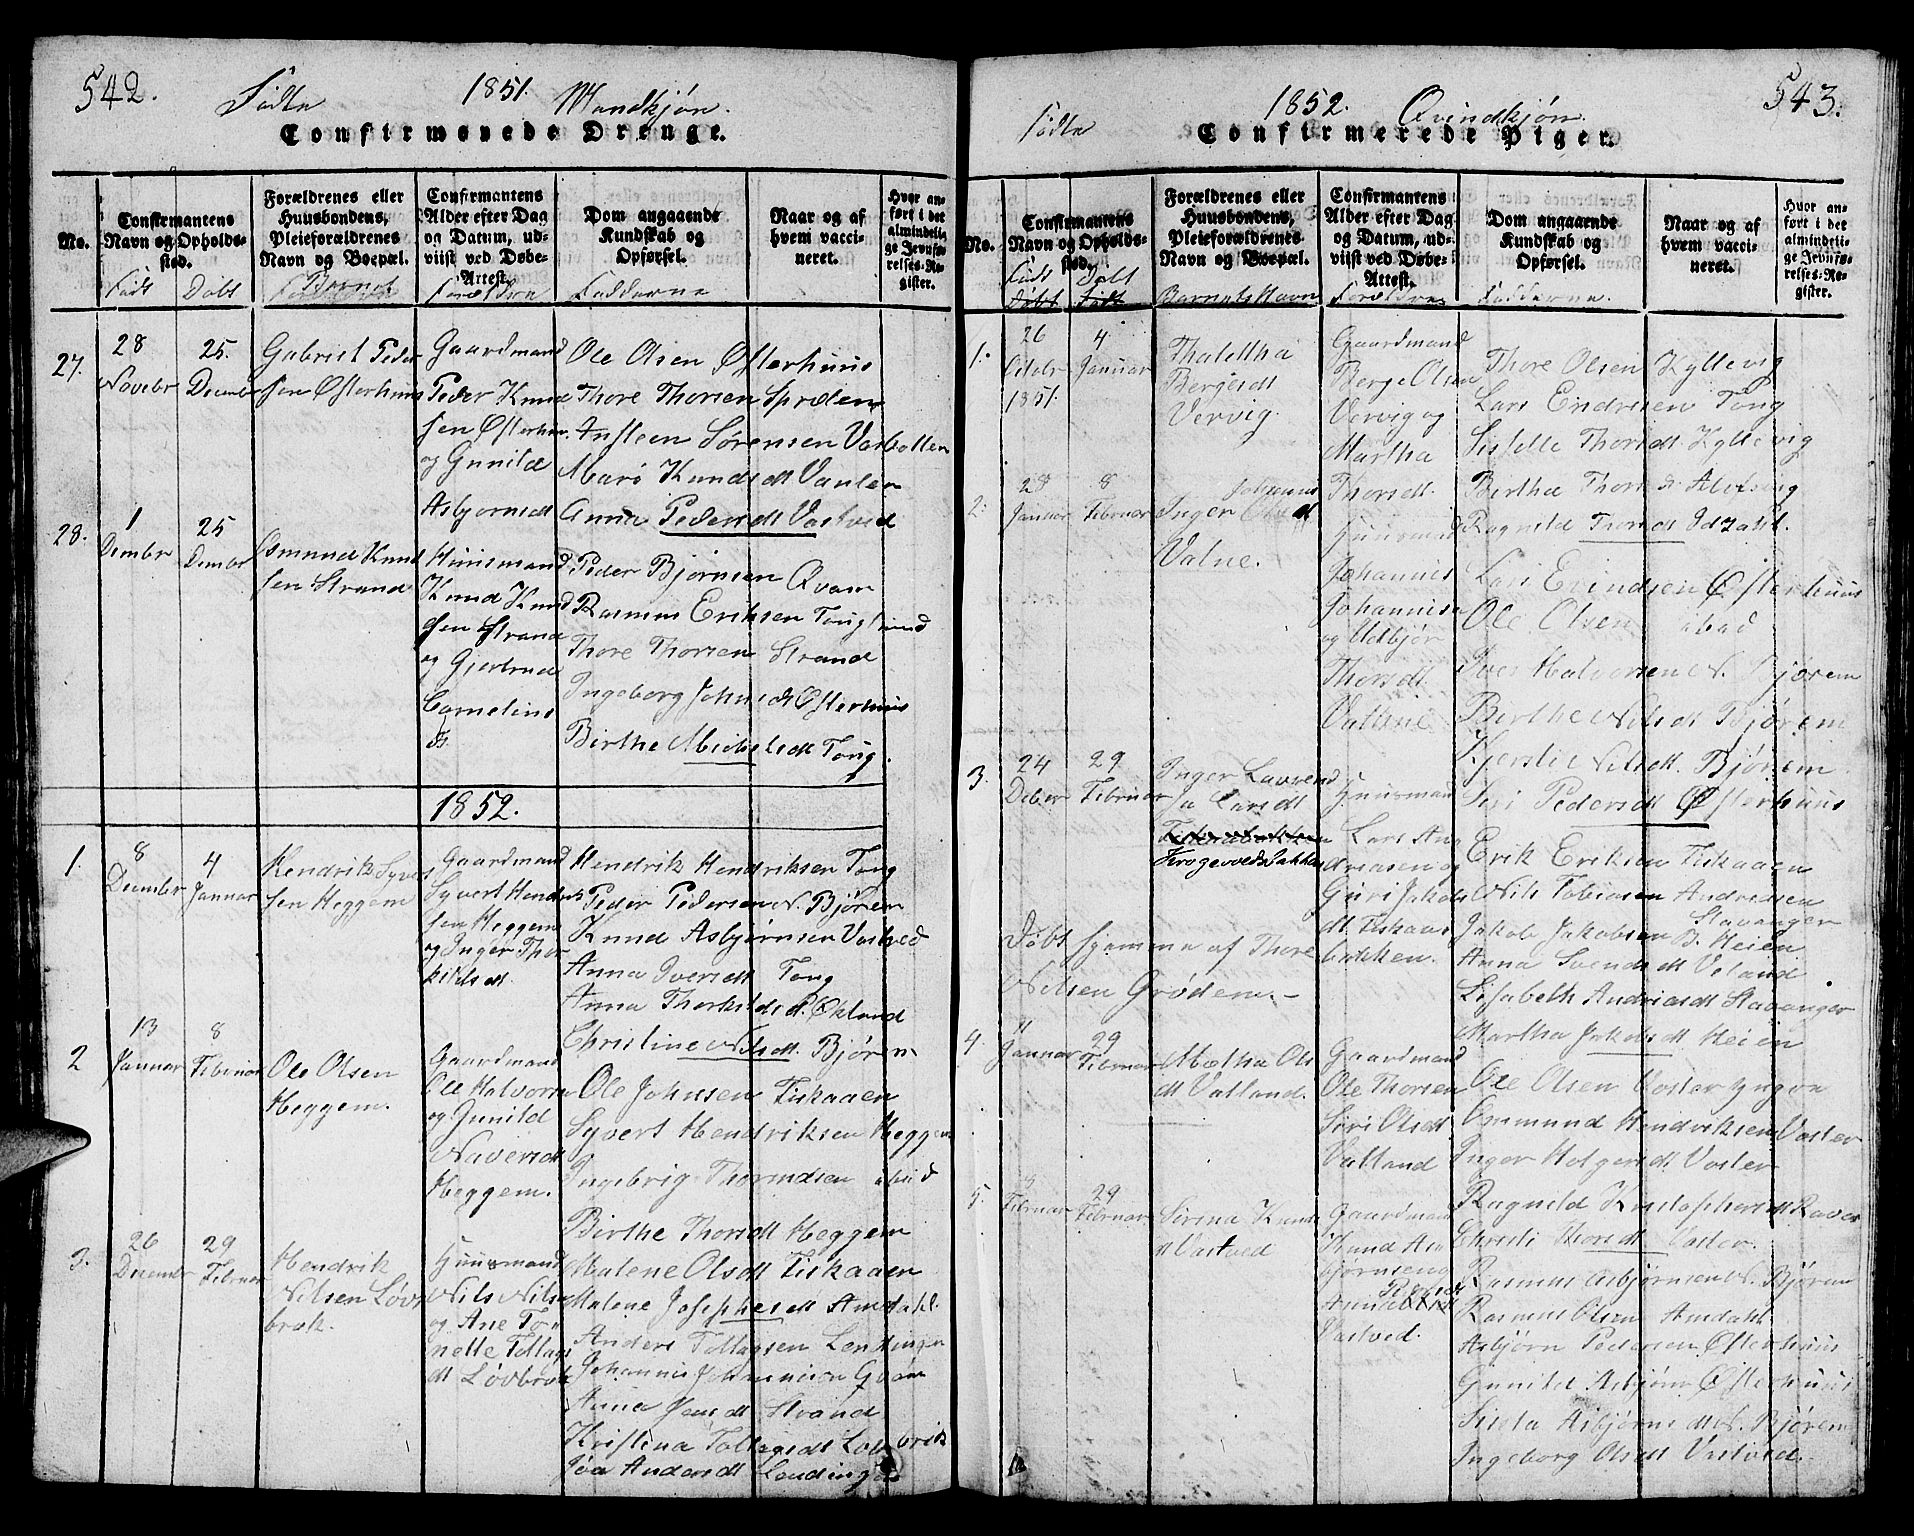 542.
Födte 1851. Mandkjøn.
Confirmerede Drenge.
No.
Confirmantens Navn og Opholdssted.
Födt Döbt
Forældrenes eller Huusbondens, Pleieforældrenes Navn og Boepæl.
Barnet
Confirmantens Alder efter Dag og Datum, udviist ved Døbe-Attest.
Forældre
Dom angaaende Kundskab og Opførsel.
Fadderne
Naar og af hvem vaccineret.
Hvor anført i det almindelige Jevnførelses-Register.
27.
28 Novebr
25. Decembr
Gabriel Peder
sen Østerhuus
Gaardmand
Peder Knud
sen Østerhuu
og Gunild
Asbjornsdt
Ole Olsen Østerhuus
Thore Thorsen Sprelen
Ansteen Sørensen Vasbotten
Mari Knudsdt Vanlen
Anna Pedersdt Vastved
28.
1 Dcembr
25 Dcembr
Osmund Knud
sen Strand
Huusmand
Knud Knud
sen Strand
og Gjertrud
Cornelius
dt.
Peder Bjørnsen Qvam
Rasmus Eriksen Tongsund
Thore Thorsen Strand
Ingeborg Johnsdt Østerhuus
Birthe Michelsdt Tong.
1852.
1.
8 Decmber
4 Januar
Hendrik Syvert
sen Heggem
Gaardmand
Syvert Hendrik
sen Heggem
og Inger Thor
kildsdt.
Hendrik Hendriksen Tong
Peder Pedersen N. Bjørem
Knud Asbjørnsen Vastved
Anna Iversdt Tong
Anna Thorkildsd. Økland
Christine Nilsdt. Bjørem
2
13 Januar
8 Februar
Ole Olsen
Heggem.
Gaardmand
Ole Halvorsn
og Gunild
Naversdt
Heggem.
Ole Johnsen Fiskaaen
Syvert Hendriksen Heggem
Ingebrig Thormdsen ibid
Birthe Thorsdt Heggem
Malene Olsdt Fiskaaen
Malene Josephsdt Amdahl.
3.
26 Decembr
29 Februar
Hendrik
Nilsen Løv
brek.
Huusmand
Nils Nilsn
og Ane To
nette Tollags
dt Løvbrek
Anders Tollagsen Lendingen
Johannis Johannisen Grøden
Anna Jensdt Strand
Kristena Tollagsdt Løvbrek
Joa Andersdt Lendingen
543.
Födte 1852. Qvindkjøn.
Confirmerede Piger.
No.
Confirmantens Navn og Opholdssted.
Födt Döbt
Döbt Födt
Forældrenes eller Huusbondens, Pleieforældrenes Navn og Boepæl.
Barnets Navn
Confirmantens Alder efter Dag og Datum, udviist ved Døbe-Attest.
Forældre
Dom angaaende Kundskab og Opførsel.
Fadderne.
Naar og af hvem vaccineret.
Hvor anført i det almindelige Jevnførelses-Register.
1.
26 Octobr 1851.
4 Januar
Thalettha
Bergesdt
Vervig.
Gaardmand
Berge Olsen
Vervig og
Martha
Thorsdt.
Thore Olsen Kyllevig
Lars Endresen Tong
Sisselle Thorsdt Kyllevig
Bertha Thorsdt Alvsvig
Ragnild Thorsdt Idzahl.
2.
28 Januar
8 Februar
Johannis
Inger dt
Valne.
Huusmand
Johannis
Johannisn
og Udbjør
Thorsdt.
Vallne
Lars Evindsen Østerhuus
Ole Olsen ibid
Iver Halvorsen N. Bjørem
Berthe Nilsdt Bjørem
Kjersti Nilsdt. Bjørem
Siri Pedersdt Østerhuus
3.
24 Dcber
29 Februar
Inger Laurend
sa Larsdt
Fiskaabakken
Krogevedsbakken
Huusmand
Lars An
dreasen og
Guri Jakobs
dt. Fiskaa
bakken.
Erik Eriksen Fiskaaen
Nils Tobiasen Andresen
Stavanger
Jakob Jakobsen B. Heien
Anna Svendsdt Voland
Lisabeth Andreasdt Stavanger
Martha Jakobsdt Heien
Döbt hjemme af Thore
Nilsen Grødem.
4.
11 Januar
29 Februar
Mætha Ols
dt Vatland.
Gaardmand
Ole Thorsen
Siri Olsdt
Vatland
Ole Olsen Voster yngre
Ommund Hendriksen Voster
Inger Holgersdt Voster
Ragnild Kristophersdt Ravn
Christi Thorsdt Voster.
5.
Februar
29 Februar
Sirena Knuds
dt Vastved
Gaardmand
Knud As
bjørnsen og
Anna
Vastved.
Rasmus Asbjørnsen N. Bjørem
Rasmus Olsen Amdahl
Asbjørn Pedersen Østerhuus
Gunild Asbjørnsdt Østerhuus
Siseta Asbjørnsdt N. Bjørem
Ingeborg Olsdt Vastved.